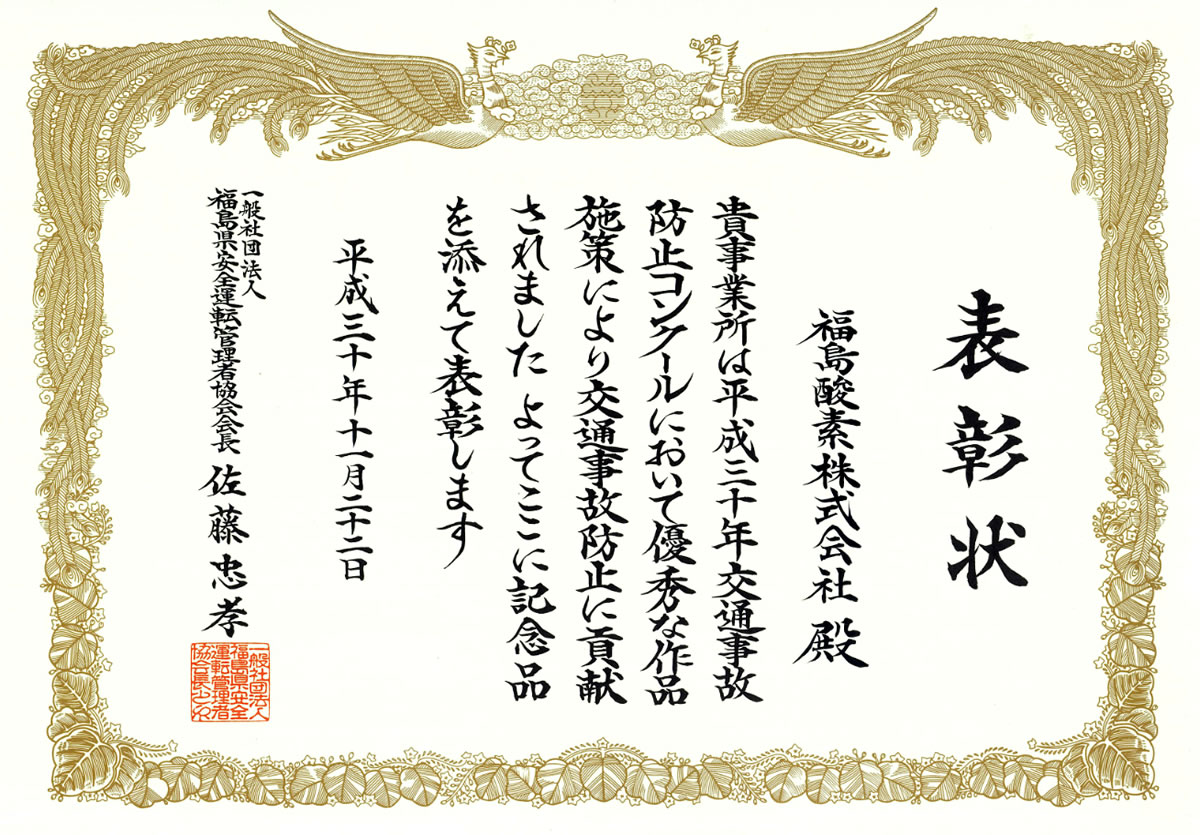 表彰状
福島酸素株式会社 殿
貴事業所は平成三十年交通事故
防止コンクールにおいて優秀な作品
施策により交通事故防止に貢献
されました よってここに記念品
を添えて表彰します
平成三十年十一月二十二日
一般社団法人
福島県安全運転管理者協会会長 佐藤忠孝
一般社団法人
福島県安全
運転管理者
協会長之印